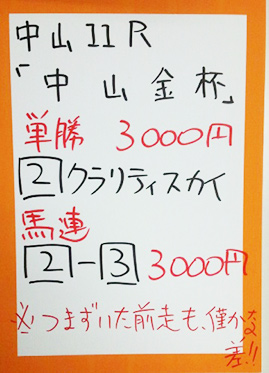 中山11R
「中山金杯」
単勝 3000円
2クラリティスカイ
馬連
2-3 3000円
※つまずいた前走も、僅かな
差!!